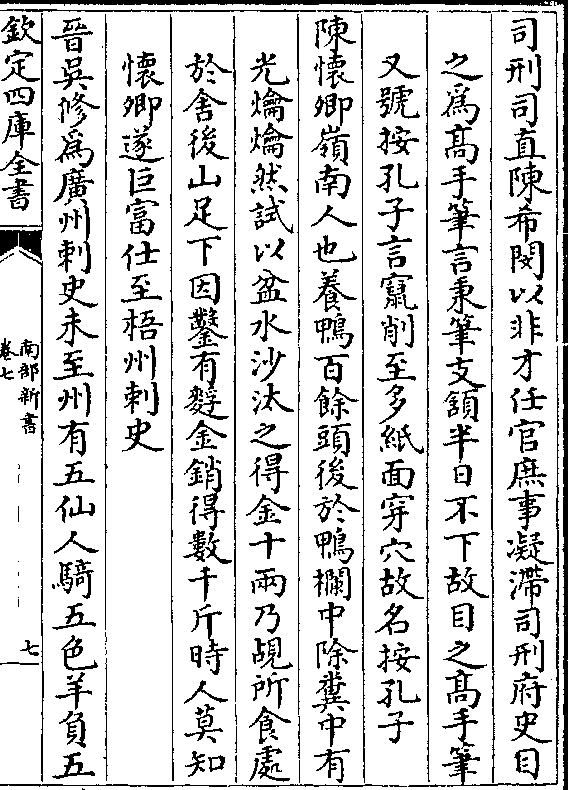 司刑司直陳希閔以非才任官庶事凝滯司刑府史目
之為髙手筆言秉筆支額半日不下故目之髙手筆
又號按孔子言竄削至多紙面穿穴故名按孔子
陳懷卿嶺南人也養鴨百餘頭後於鴨欄中除糞中有
光爚爚然試以盆水沙汰之得金十兩乃覘所食處
於舍後山足下因鑿有麩金銷得數千斤時人莫知
懷卿遂巨富仕至梧州刺史
晉吳修為廣州刺史未至州有五仙人騎五色羊負五
欽定四庫全書
南部新書
卷七
七